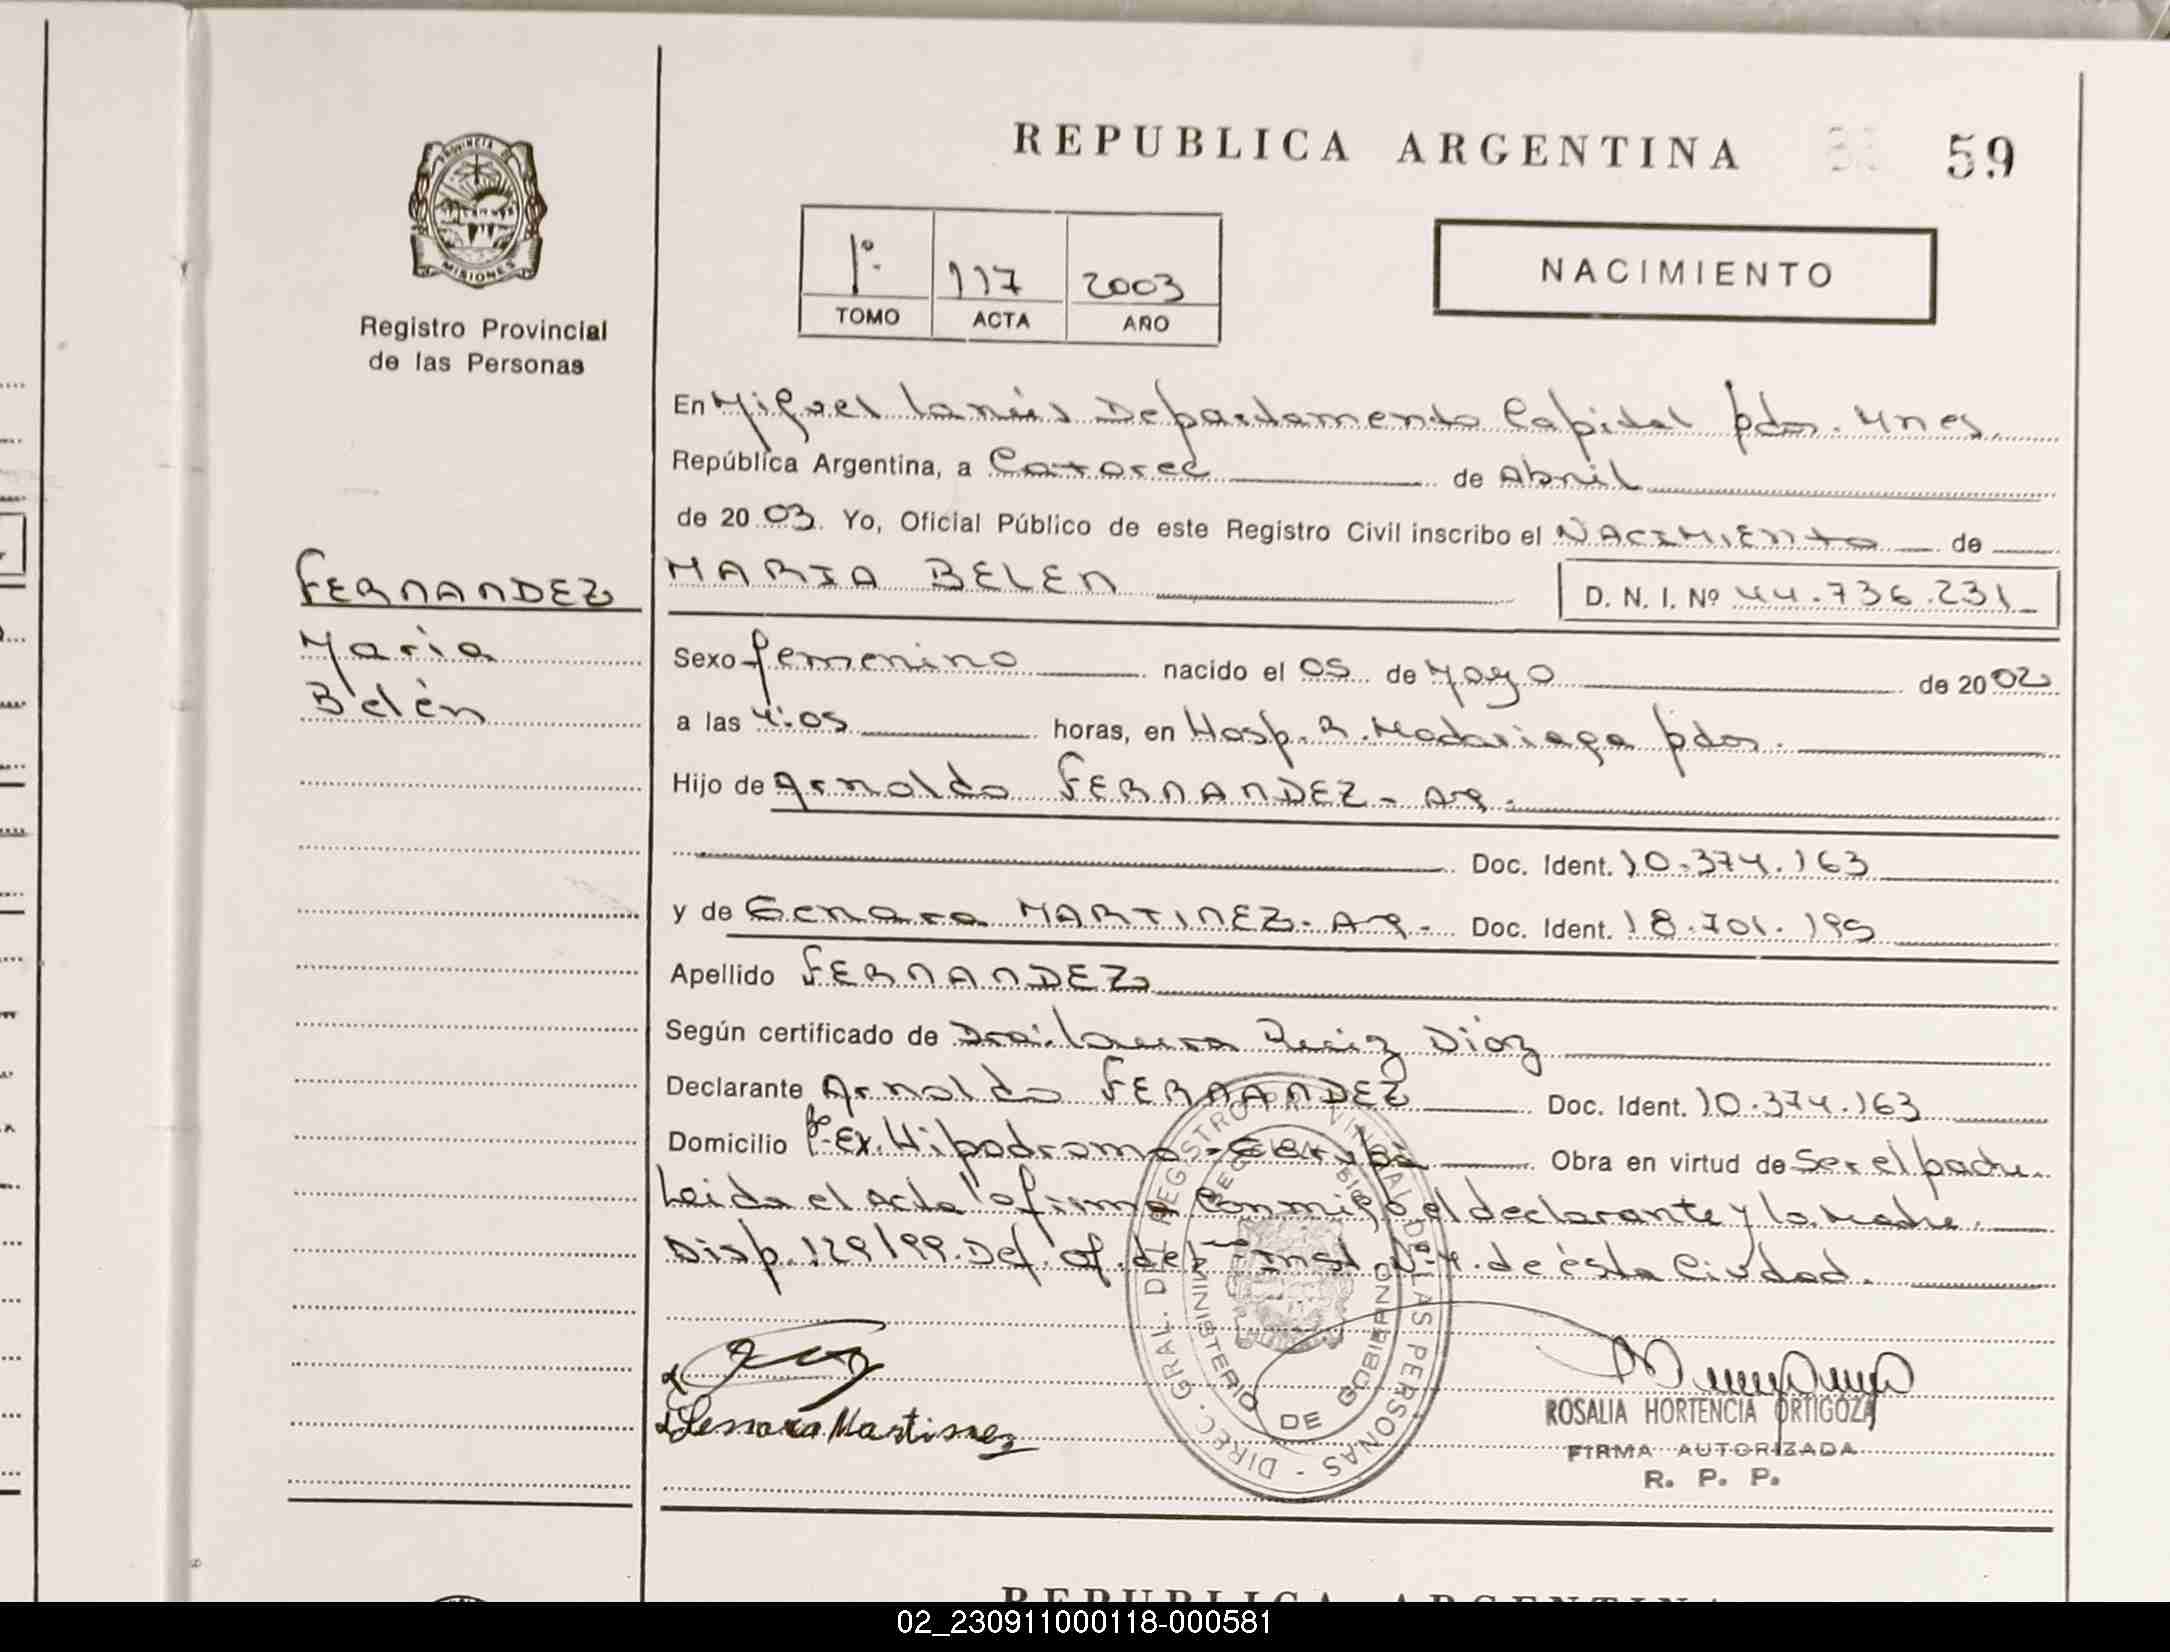 REPUBLICA ARGENTINA 59
PROVINCIA DE
MISIONES
Registro Provincial
de las Personas
1º. 117 2003
TOMO ACTA AÑO
NACIMIENTO
En Miguel Lanús Departamento Capital Pdas. Mnes.
República Argentina, a Catorce de Abril
de 20 03. Yo, Oficial Público de este Registro Civil inscribo el NACIMIENTO de
FERNANDEZ
María
Belén
MARIA BELEN
D. N. I. Nº 44.736.231
Sexo femenino nacido el 05 de Mayo de 20 02
a las 4:05 horas, en Hosp. R. Madariaga Pdas.
Hijo de Arnoldo FERNANDEZ - Arg.
Doc. Ident. 10.374.163
y de Genara MARTINEZ - Arg. Doc. Ident. 18.701.195
Apellido FERNANDEZ
Según certificado de Dra. Laura Ruiz Díaz
Declarante Arnoldo FERNANDEZ Doc. Ident. 10.374.163
Domicilio Bº Ex. Hipodromo - Garupá Obra en virtud de Ser el padre.
Leida el Acta firma Conmigo el declarante y la Madre.
Disp. 129/99. Def. Of. de Inst. Nº 4. de ésta Ciudad.
DIREC. GRAL. DEL REGISTRO PROVINCIAL DE LAS PERSONAS
MINISTERIO DE GOBIERNO
Genara Martinez
ROSALIA HORTENCIA ORTIGOZA
FIRMA AUTORIZADA
R. P. P.
REPUBLICA ARGENTINA
02_230911000118-000581